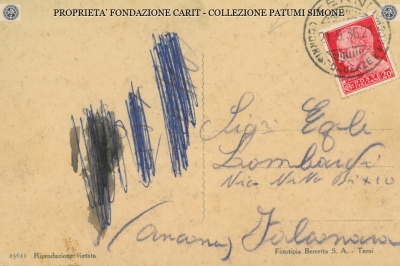 PROPRIETA' FONDAZIONE CARIT - COLLEZIONE PATUMI SIMONE
Sig. Egle
Lombardi
Via Nino Bixio
(Ancona) Falconara
25611 Riproduzione vietata
Fototipia Berretta S. A. - Terni